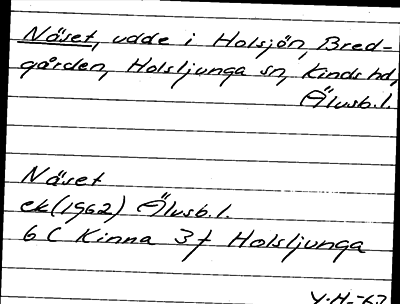 Näset, udde i Holsjön, Bred-
gården, Holsljunga sn, Kinds hd,
Älvsb.l.
Näset
ek(1962) Älvsb.l.
6C Kinna 3f Holsljunga
Y.H.-63